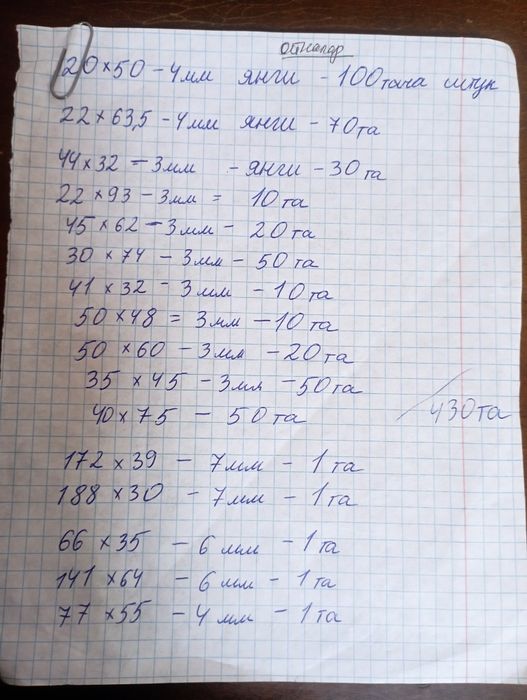 ойналар
20×50 – 4мм янги – 100тача штук
22×63,5 – 4мм янги – 70та
44×32 – 3мм – янги – 30та
22×93 – 3мм = 10та
45×62 – 3мм – 20та
30×74 – 3мм – 50та
41×32 – 3мм – 10та
50×48 = 3мм – 10та
50×60 – 3мм – 20та
35×45 – 3мм – 50та
40×75 – 50та
430та
172×39 – 7мм – 1та
188×30 – 7мм – 1та
66×35 – 6мм – 1та
141×64 – 6мм – 1та
77×55 – 4мм – 1та